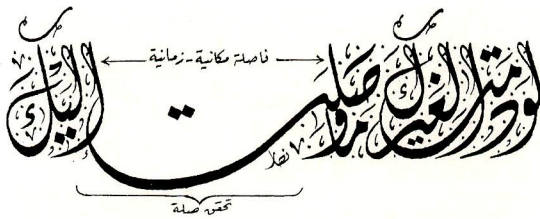 فاصلة مكانية - زمانية
لو دامت لغيرك ما وصلت إليك
٧ نقاط
تحقق صلة